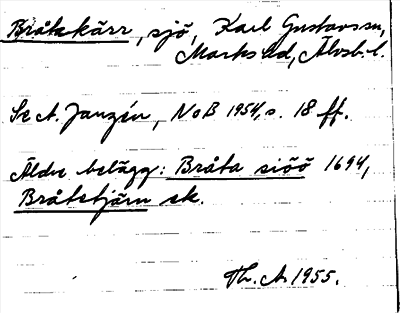 Bråtakärr, sjö, Karl Gustavssn,
Marks hd, Älvsb. l.
Se A. Janzén, NoB 1954, s. 18 ff.
Äldre belägg: Bråta siöö 1694,
Bråtetjärn ek.
Th. A. 1955.